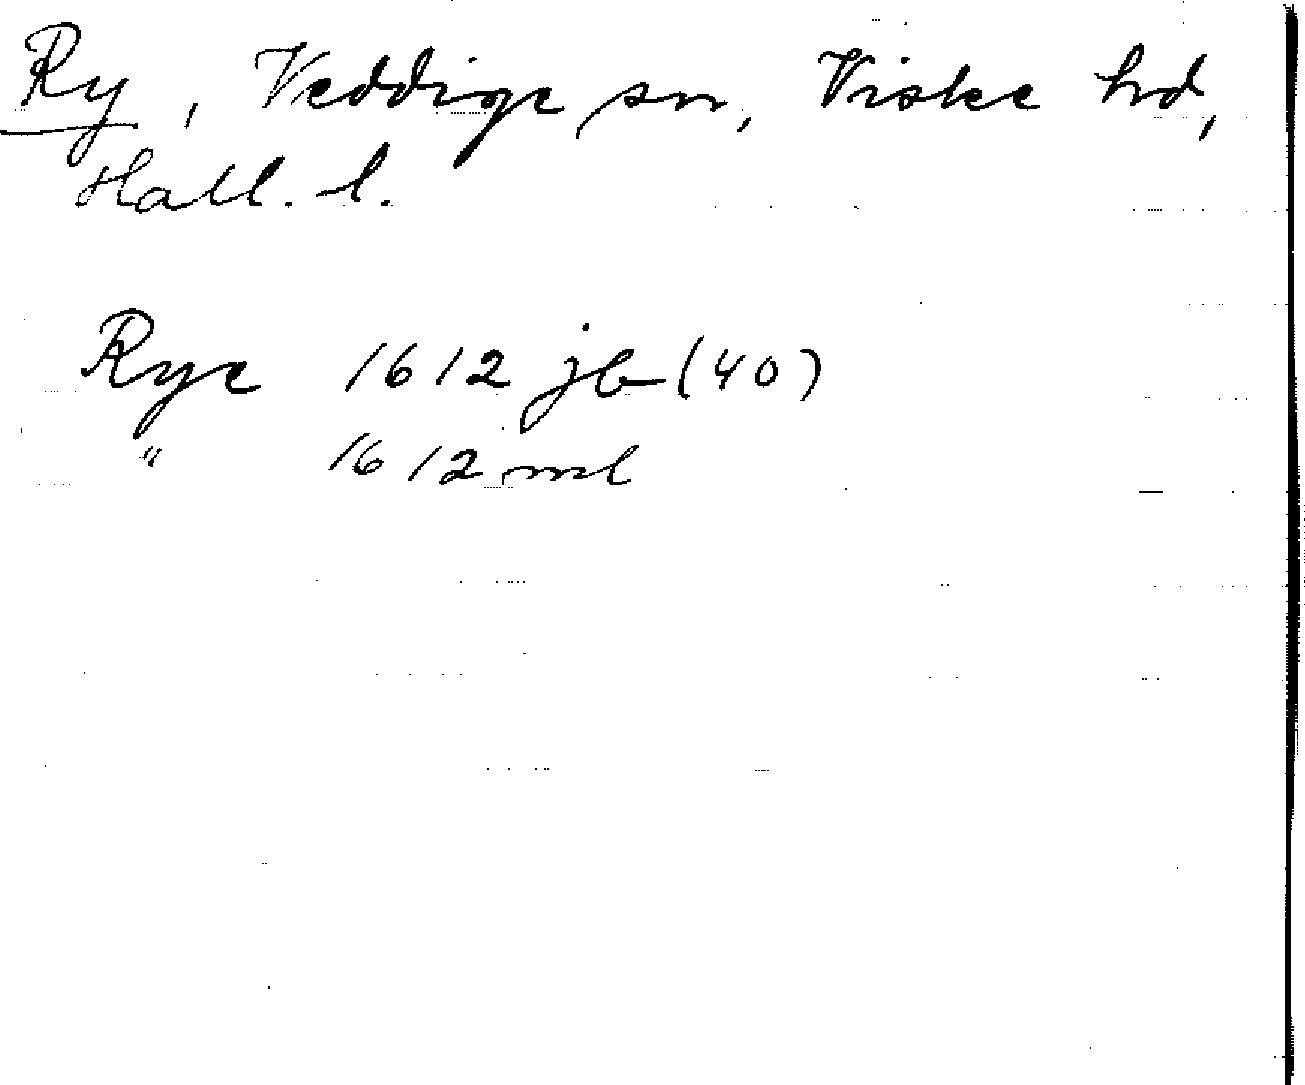 Ry, Veddige sn, Viske hd,
Hall. l.
Rye 1612 jb (40)
" 1612 ml